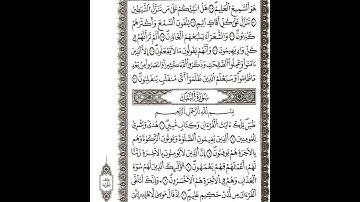 هُوَ ٱلسَّمِيعُ ٱلْعَلِيمُ ۝ هَلْ أُنَبِّئُكُمْ عَلَىٰ مَن تَنَزَّلُ ٱلشَّيَٰطِينُ
۝ تَنَزَّلُ عَلَىٰ كُلِّ أَفَّاكٍ أَثِيمٍ ۝ يُلْقُونَ ٱلسَّمْعَ وَأَكْثَرُهُمْ
كَٰذِبُونَ ۝ وَٱلشُّعَرَآءُ يَتَّبِعُهُمُ ٱلْغَاوُۥنَ ۝ أَلَمْ تَرَ أَنَّهُمْ فِى
كُلِّ وَادٍ يَهِيمُونَ ۝ وَأَنَّهُمْ يَقُولُونَ مَا لَا يَفْعَلُونَ ۝ إِلَّا ٱلَّذِينَ
ءَامَنُوا۟ وَعَمِلُوا۟ ٱلصَّٰلِحَٰتِ وَذَكَرُوا۟ ٱللَّهَ كَثِيرًا وَٱنتَصَرُوا۟ مِنۢ بَعْدِ
مَا ظُلِمُوا۟ وَسَيَعْلَمُ ٱلَّذِينَ ظَلَمُوٓا۟ أَىَّ مُنقَلَبٍ يَنقَلِبُونَ ۝
سُورَةُ ٱلنَّمْلِ
بِسْمِ ٱللَّهِ ٱلرَّحْمَٰنِ ٱلرَّحِيمِ
طسٓ تِلْكَ ءَايَٰتُ ٱلْقُرْءَانِ وَكِتَابٍ مُّبِينٍ ۝ هُدًى وَبُشْرَىٰ
لِلْمُؤْمِنِينَ ۝ ٱلَّذِينَ يُقِيمُونَ ٱلصَّلَوٰةَ وَيُؤْتُونَ ٱلزَّكَوٰةَ وَهُم
بِٱلْءَاخِرَةِ هُمْ يُوقِنُونَ ۝ إِنَّ ٱلَّذِينَ لَا يُؤْمِنُونَ بِٱلْءَاخِرَةِ زَيَّنَّا
لَهُمْ أَعْمَٰلَهُمْ فَهُمْ يَعْمَهُونَ ۝ أُو۟لَٰٓئِكَ ٱلَّذِينَ لَهُمْ سُوٓءُ
ٱلْعَذَابِ وَهُمْ فِى ٱلْءَاخِرَةِ هُمُ ٱلْأَخْسَرُونَ ۝ وَإِنَّكَ لَتُلَقَّى
ٱلْقُرْءَانَ مِن لَّدُنْ حَكِيمٍ عَلِيمٍ ۝ إِذْ قَالَ مُوسَىٰ لِأَهْلِهِۦٓ إِنِّىٓ